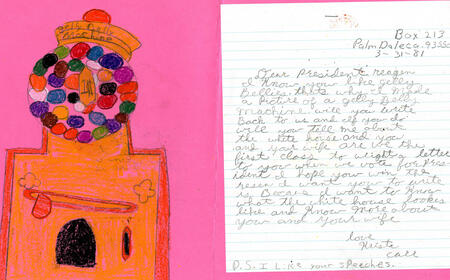 Jelly Belly
Machine
Box 213
Palmdaleca. 93550
3-31-81
Dear President reagen
I Know you like gelly
Bellies. thats why I made
a picture of a gelly Belly
Machine will you write
Back to us and if you do
will you tell me about
the white house and you
and your wife are we the
first class to
letter
to you when we vote for Pres
ident I hope you won the
resen I want you to write
is Becaus I want to know
what the white house lookes
like and know more about
you and your wife
love
P.S. I Like your speeches.